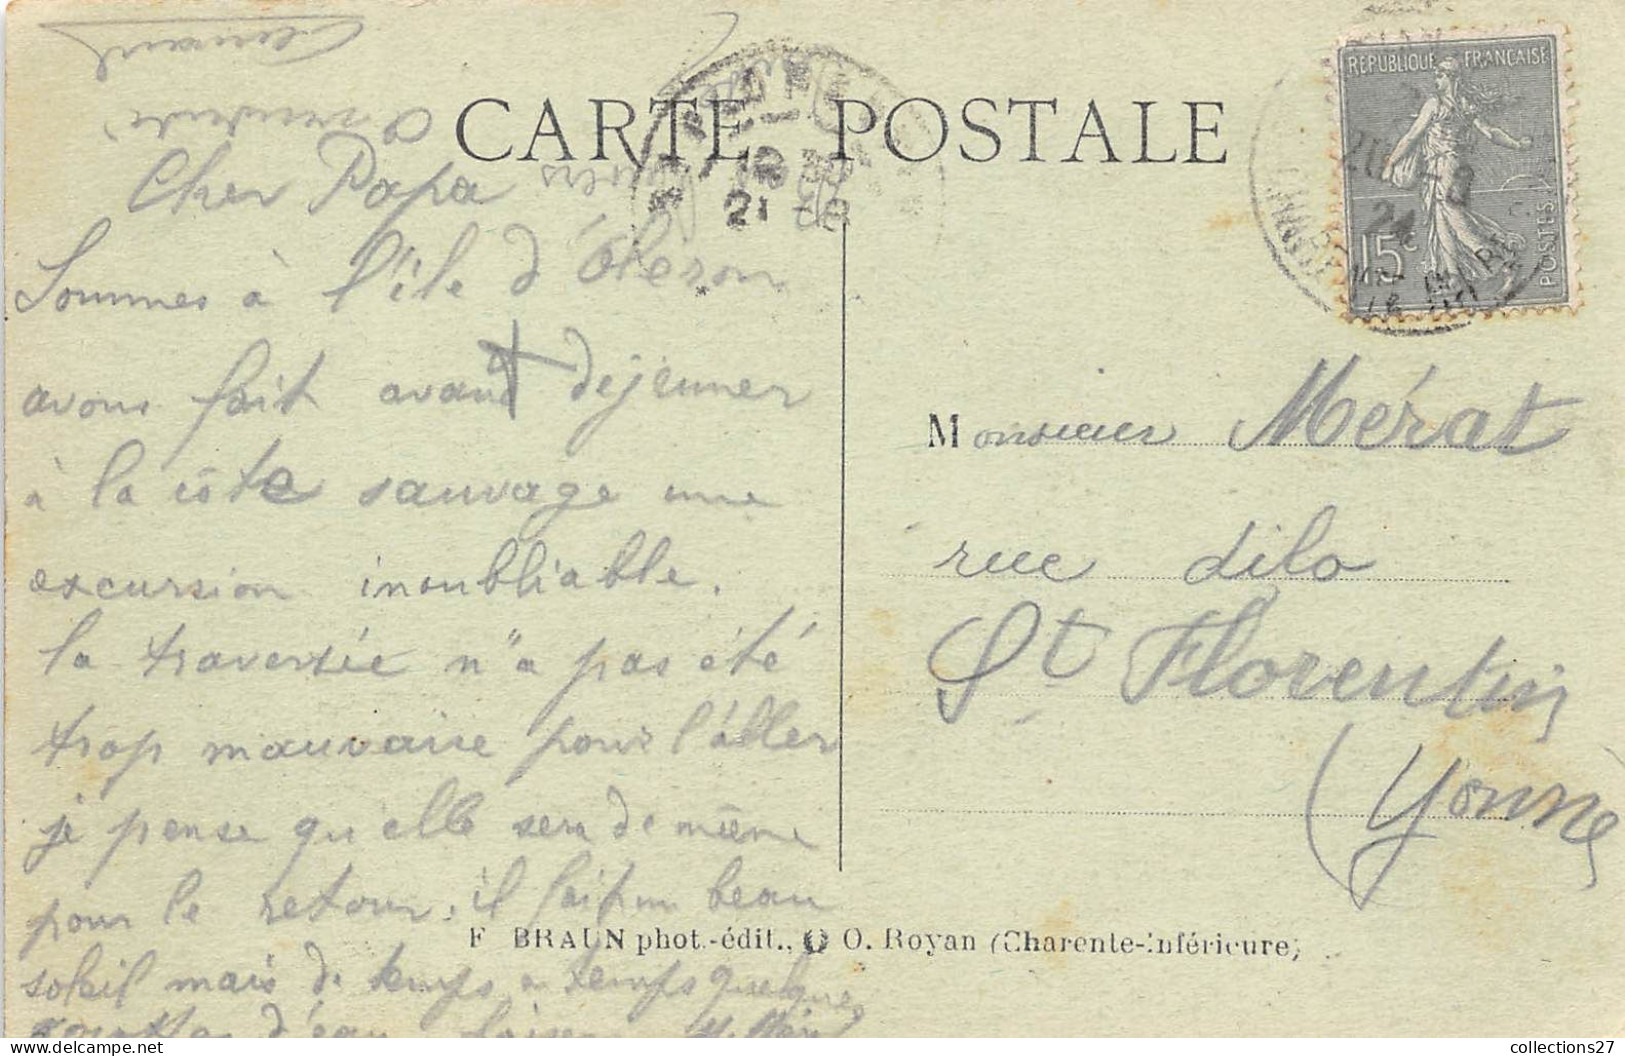 CARTE POSTALE
RÉPUBLIQUE FRANÇAISE
15c
POSTES
Cher Papa
Sommes à l'île d'Oleron
avons fait avant dejeuner
à la côte sauvage une
excursion inoubliable.
la traversée n'a pas été
trop mauvaise pour l'aller
je pense qu'elle sera de même
pour le retour, il fait un beau
soleil mais de temps a temps quelques
gouttes d'eau
Monsieur Mérat
rue dilo
St Florentin
(Yonne
F BRAUN phot.-édit., O. Royan (Charente-Inférieure)
collections27